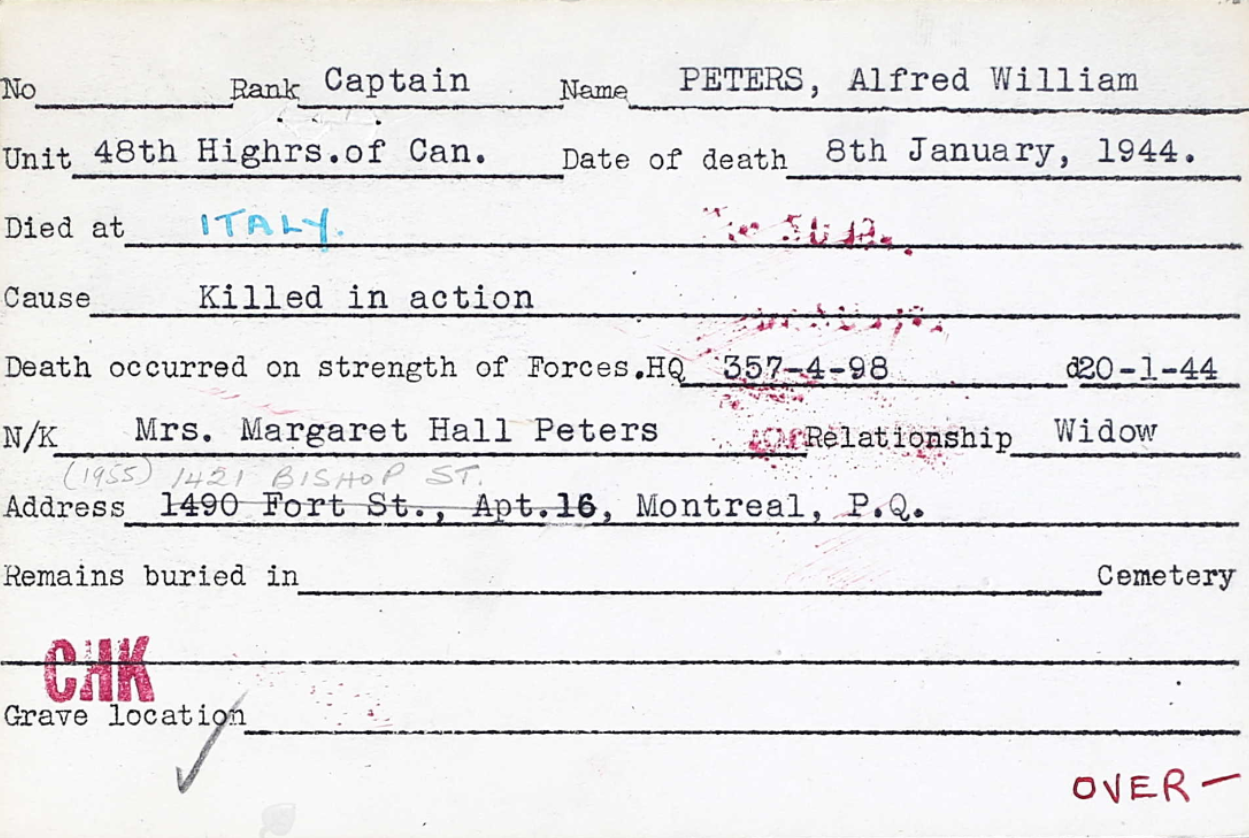 No Rank Captain Name PETERS, Alfred William
Unit 48th Highrs.of Can. Date of death 8th January, 1944.
Died at ITALY.
Cause Killed in action
Death occurred on strength of Forces.HQ 357-4-98 d20-1-44
N/K Mrs. Margaret Hall Peters Relationship Widow
(1955) 1421 BISHOP ST.
Address 1490 Fort St., Apt.16, Montreal, P.Q.
Remains buried in Cemetery
CHK
Grave location
OVER-